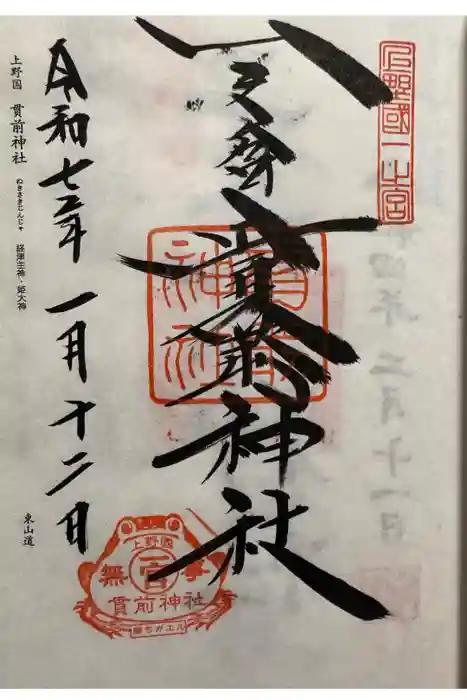 上野國一之宮
貫前神社
貫前神社
令和七年一月十二日
上野國
無事
貫前神社
勝ちガエル
上野国 貫前神社 ぬきさきじんじゃ 経津主神・姫大神
東山道